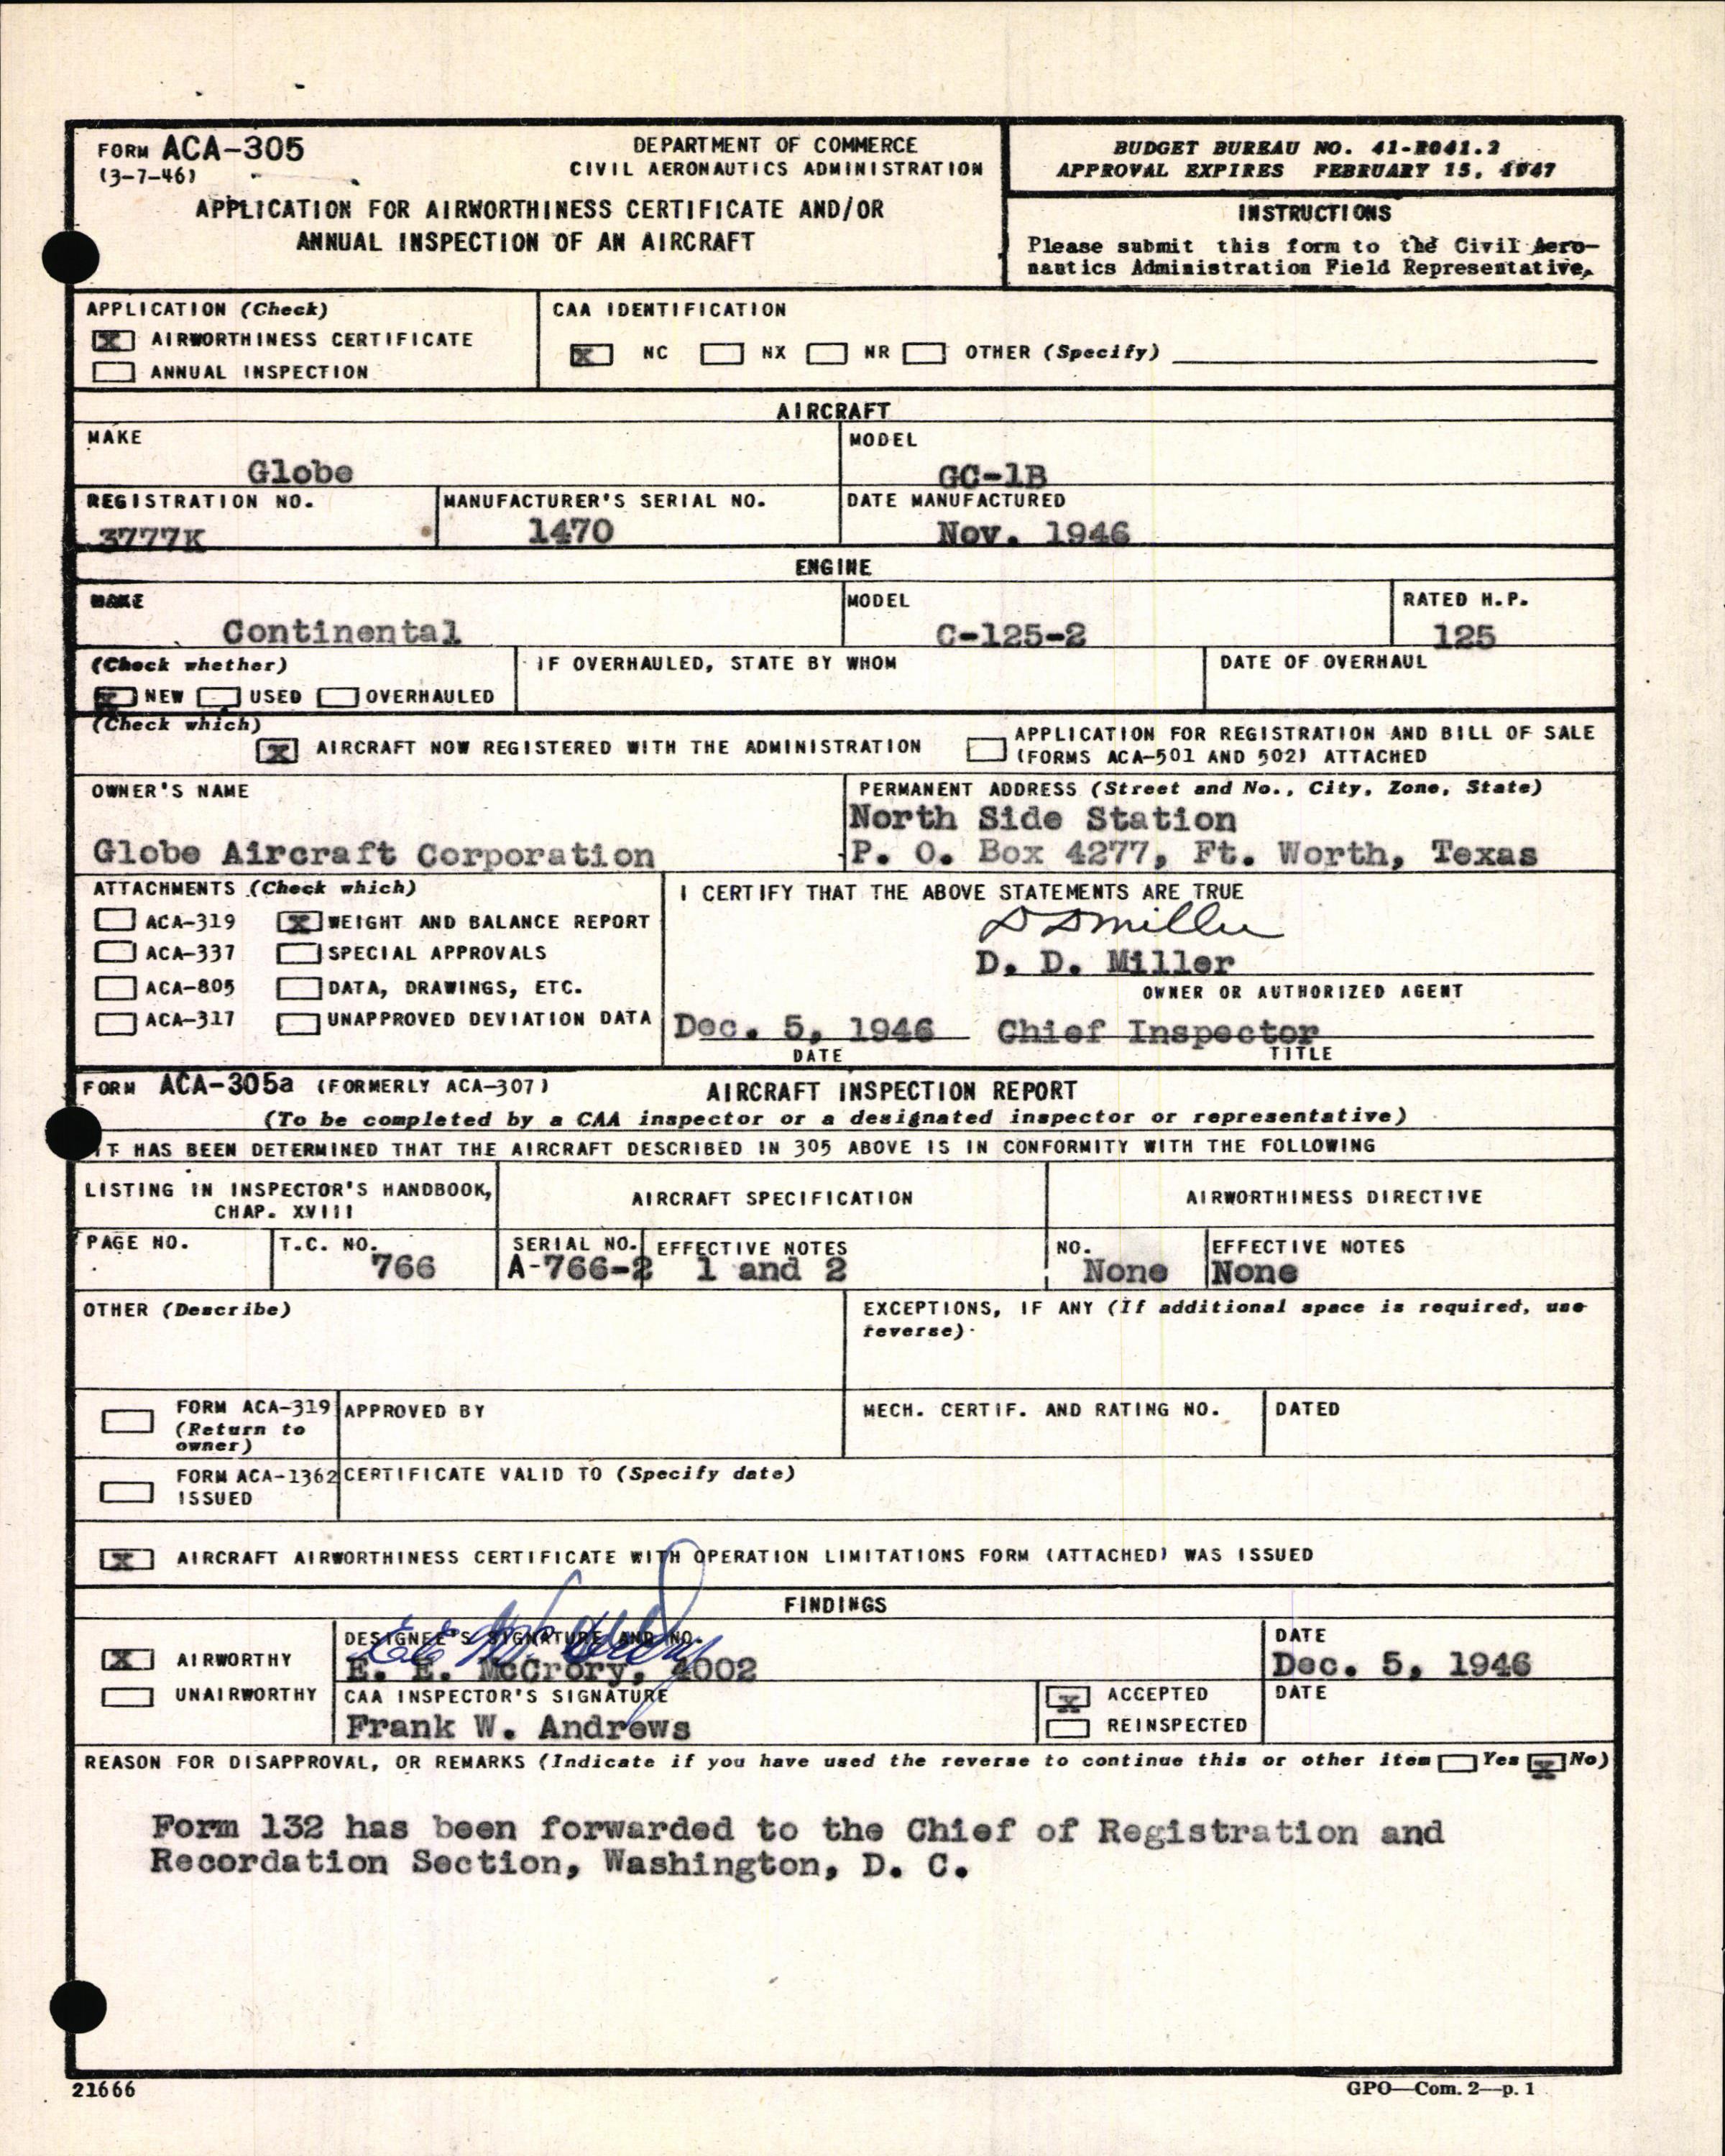 FORM ACA-305
(3-7-46)
DEPARTMENT OF COMMERCE
CIVIL AERONAUTICS ADMINISTRATION
APPLICATION FOR AIRWORTHINESS CERTIFICATE AND/OR
ANNUAL INSPECTION OF AN AIRCRAFT
BUDGET BUREAU NO. 41-R041.2
APPROVAL EXPIRES FEBRUARY 15, 1947
INSTRUCTIONS
Please submit this form to the Civil Aero-
nautics Administration Field Representative.
APPLICATION (Check)
X AIRWORTHINESS CERTIFICATE
ANNUAL INSPECTION
CAA IDENTIFICATION
X NC NX NR OTHER (Specify)
AIRCRAFT
MAKE
Globe
MODEL
GC-1B
REGISTRATION NO.
3777K
MANUFACTURER'S SERIAL NO.
1470
DATE MANUFACTURED
Nov. 1946
ENGINE
MAKE
Continental
MODEL
C-125-2
RATED H.P.
125
(Check whether)
X NEW USED OVERHAULED
IF OVERHAULED, STATE BY WHOM
DATE OF OVERHAUL
(Check which)
X AIRCRAFT NOW REGISTERED WITH THE ADMINISTRATION
APPLICATION FOR REGISTRATION AND BILL OF SALE
(FORMS ACA-501 AND 502) ATTACHED
OWNER'S NAME
Globe Aircraft Corporation
PERMANENT ADDRESS (Street and No., City, Zone, State)
North Side Station
P. O. Box 4277, Ft. Worth, Texas
ATTACHMENTS (Check which)
ACA-319 X WEIGHT AND BALANCE REPORT
ACA-337 SPECIAL APPROVALS
ACA-805 DATA, DRAWINGS, ETC.
ACA-317 UNAPPROVED DEVIATION DATA
I CERTIFY THAT THE ABOVE STATEMENTS ARE TRUE
D D Miller
D. D. Miller
OWNER OR AUTHORIZED AGENT
Dec. 5, 1946 Chief Inspector
DATE TITLE
FORM ACA-305a (FORMERLY ACA-307) AIRCRAFT INSPECTION REPORT
(To be completed by a CAA inspector or a designated inspector or representative)
IT HAS BEEN DETERMINED THAT THE AIRCRAFT DESCRIBED IN 305 ABOVE IS IN CONFORMITY WITH THE FOLLOWING
LISTING IN INSPECTOR'S HANDBOOK,
CHAP. XVIII
AIRCRAFT SPECIFICATION
AIRWORTHINESS DIRECTIVE
PAGE NO.
T.C. NO.
766
SERIAL NO.
A-766-2
EFFECTIVE NOTES
1 and 2
NO.
None
EFFECTIVE NOTES
None
OTHER (Describe)
EXCEPTIONS, IF ANY (If additional space is required, use
reverse)
FORM ACA-319
(Return to
owner)
APPROVED BY
MECH. CERTIF. AND RATING NO.
DATED
FORM ACA-1362
ISSUED
CERTIFICATE VALID TO (Specify date)
X AIRCRAFT AIRWORTHINESS CERTIFICATE WITH OPERATION LIMITATIONS FORM (ATTACHED) WAS ISSUED
FINDINGS
X AIRWORTHY
UNAIRWORTHY
DESIGNEE'S SIGNATURE AND NO.
E. E. McCrory, 4002
DATE
Dec. 5, 1946
CAA INSPECTOR'S SIGNATURE
Frank W. Andrews
X ACCEPTED
REINSPECTED
DATE
REASON FOR DISAPPROVAL, OR REMARKS (Indicate if you have used the reverse to continue this or other item Yes X No)
Form 132 has been forwarded to the Chief of Registration and
Recordation Section, Washington, D. C.
21666
GPO—Com. 2—p. 1